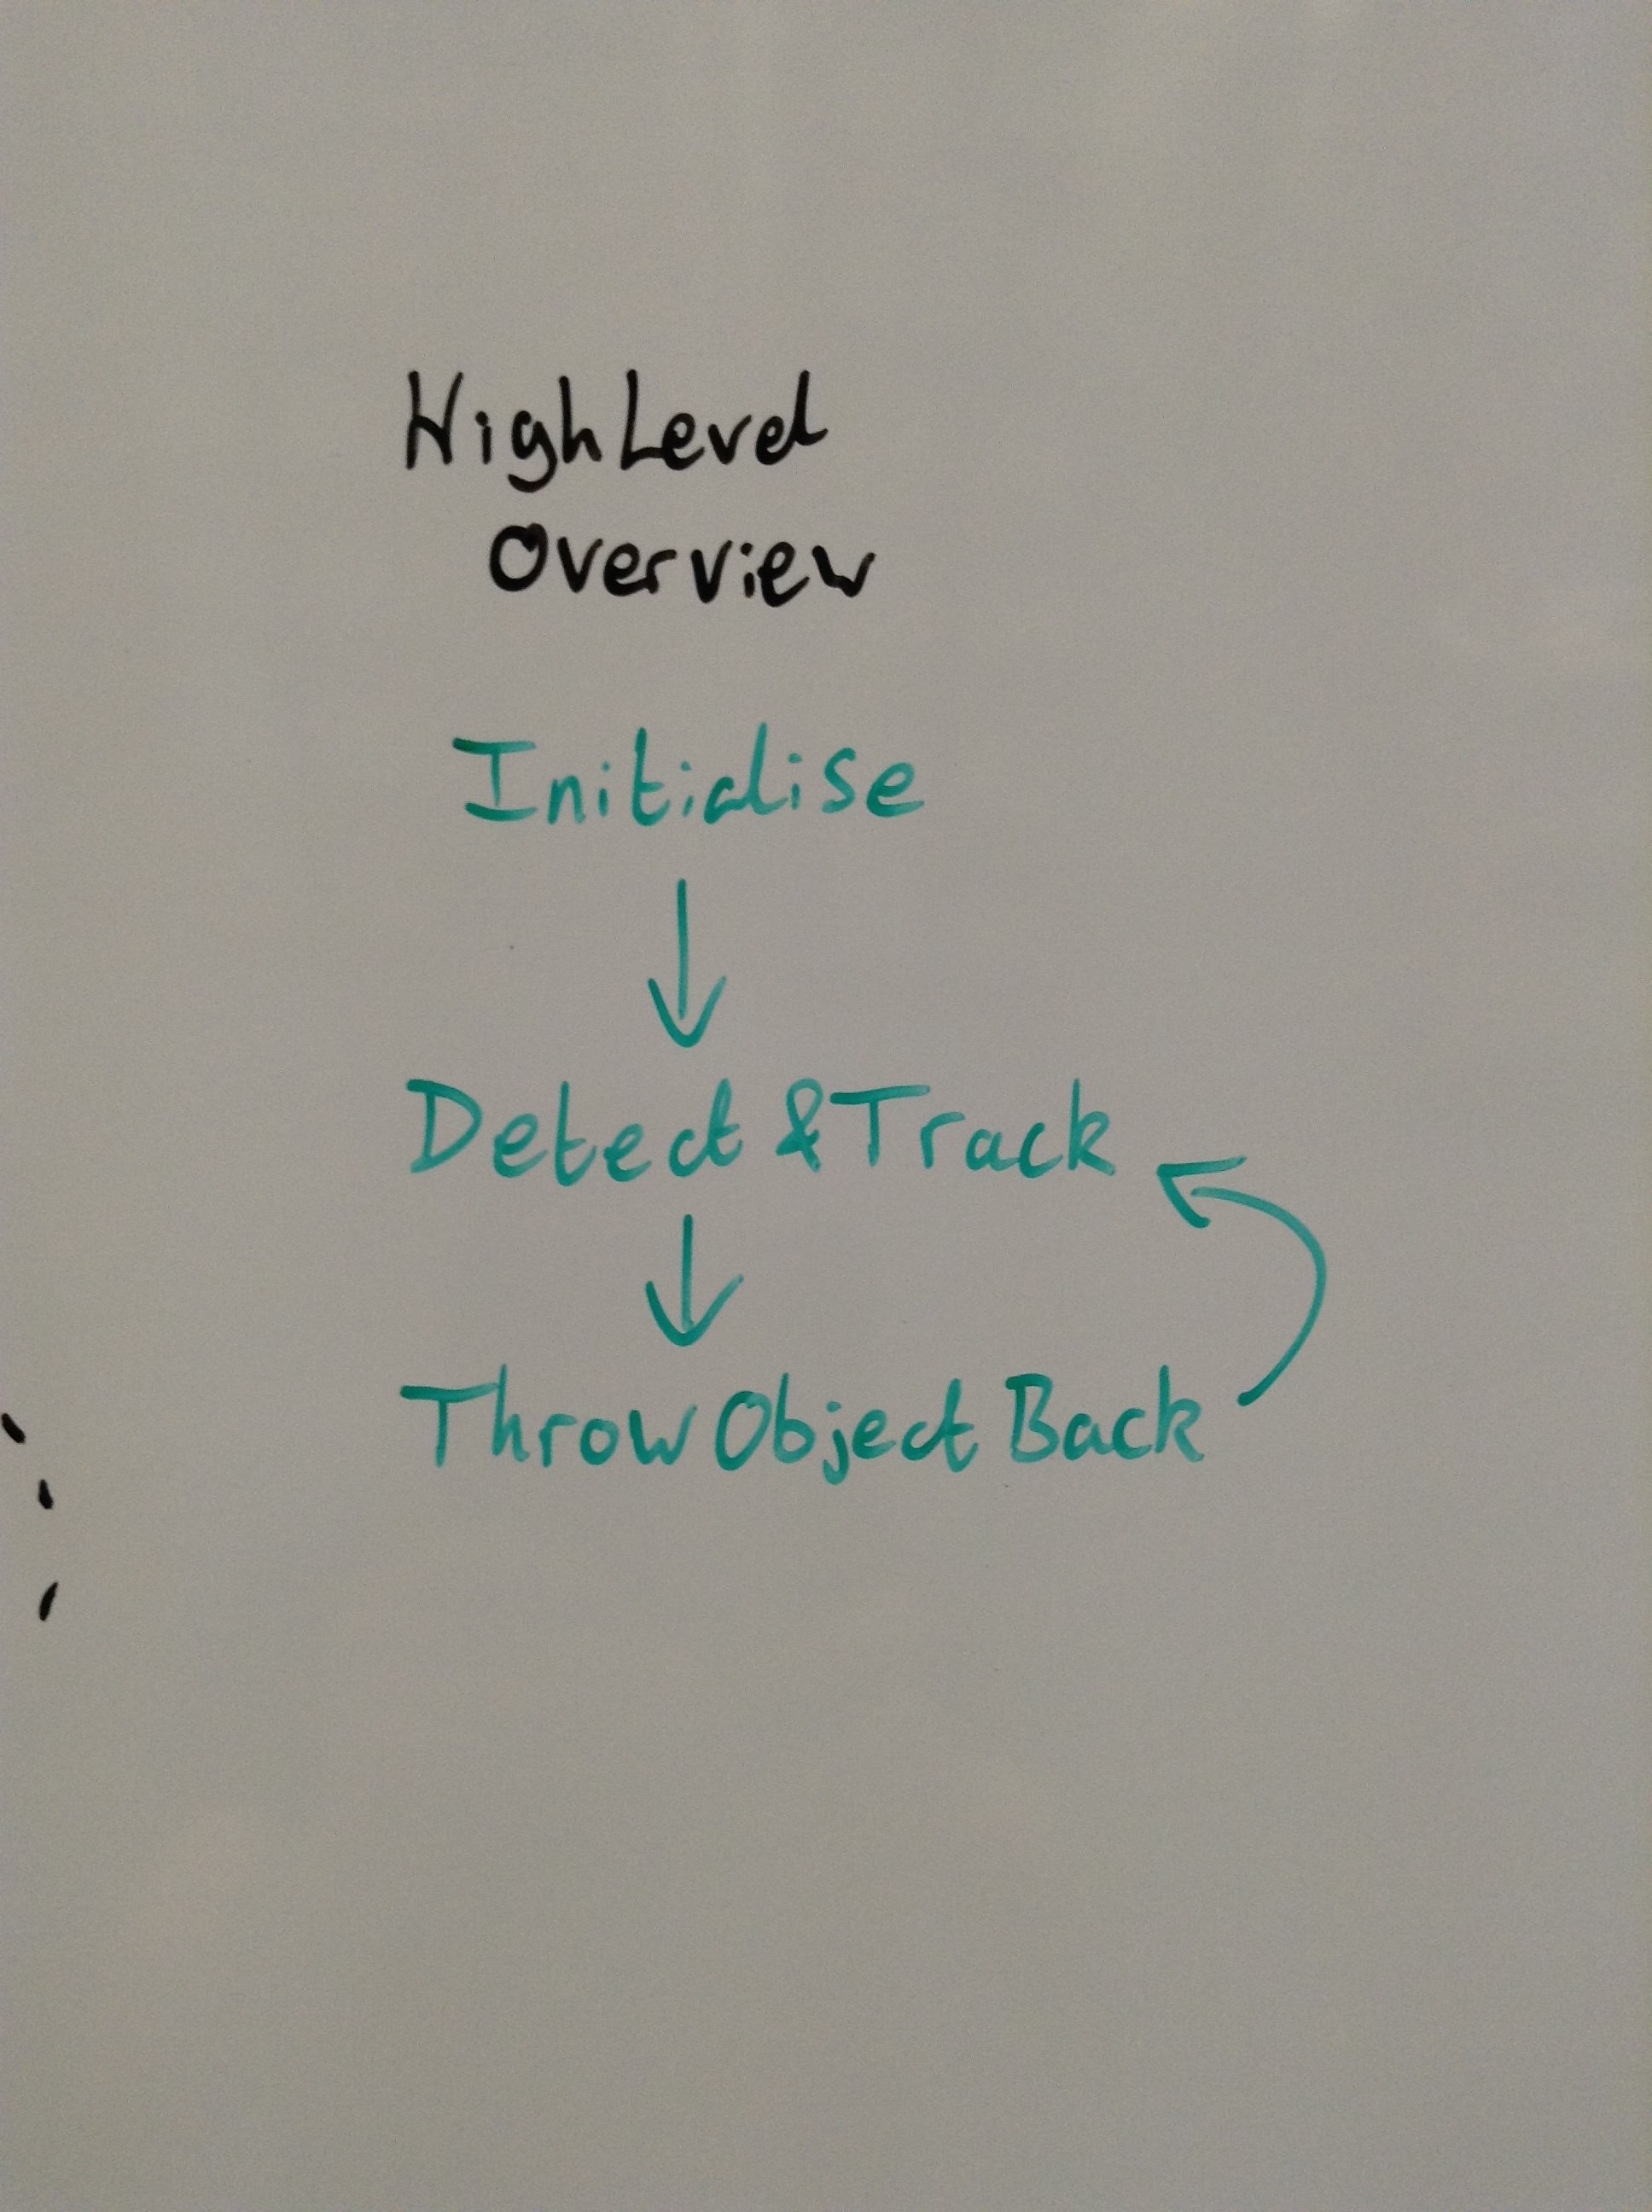 High Level
Overview
Initialise
Detect & Track
Throw Object Back